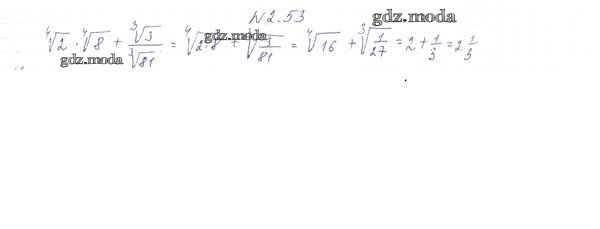 №2.53 gdz.moda
⁴√2 · ⁴√8 + ³√3 / ³√81 = ⁴√2·8 + ³√3/81 = ⁴√16 + ³√1/27 = 2 + 1/3 = 2 1/3
gdz.moda gdz.moda